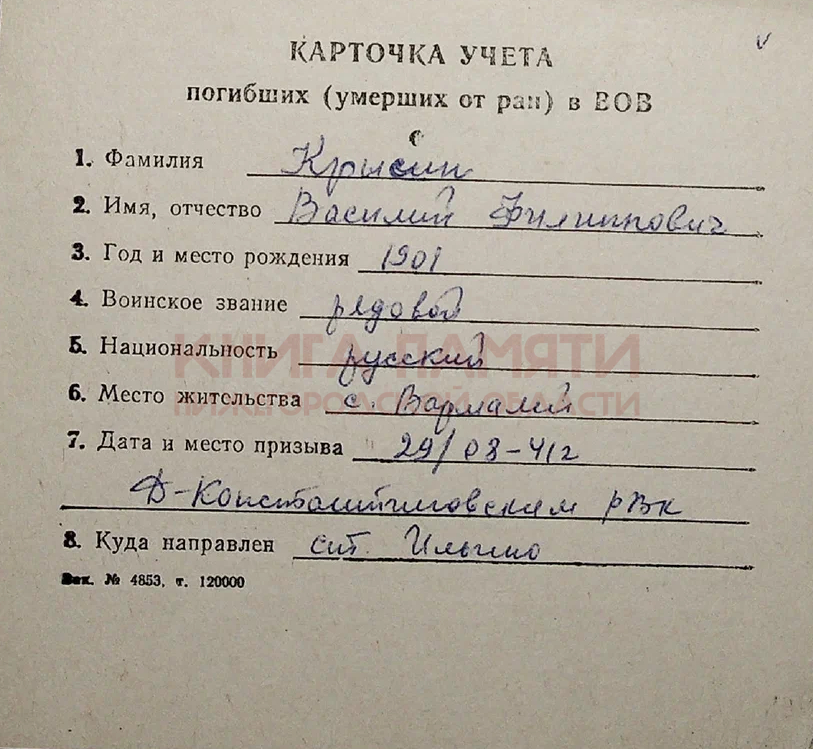 КАРТОЧКА УЧЕТА
погибших (умерших от ран) в ВОВ
1. Фамилия Крысин
2. Имя, отчество Василий Филиппович
3. Год и место рождения 1901
4. Воинское звание рядовой
5. Национальность русский
КНИГА ПАМЯТИ
НИЖЕГОРОДСКОЙ ОБЛАСТИ
6. Место жительства с. Вармалей
7. Дата и место призыва 29/08-41г
Д-Константиновским РВК
8. Куда направлен ст. Ильино
Зак. № 4853, т. 120000